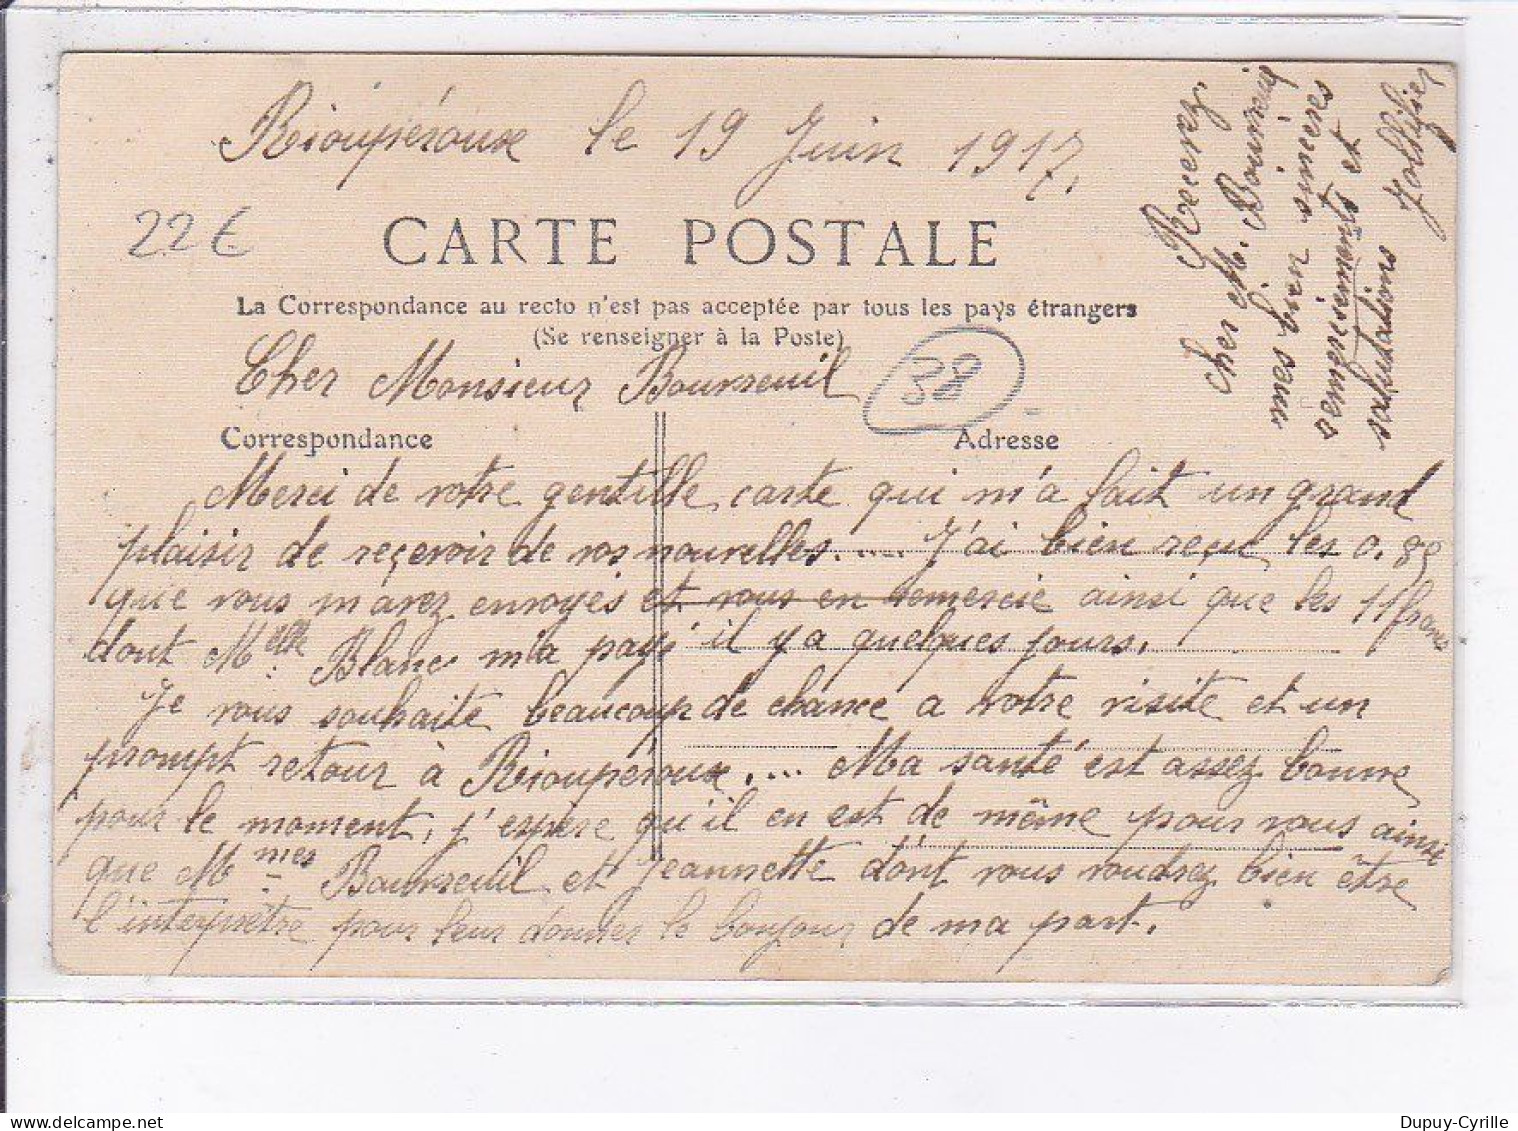 Rioupéroux le 19 Juin 1917.
22€
CARTE POSTALE
La Correspondance au recto n'est pas acceptée par tous les pays étrangers
(Se renseigner à la Poste)
Cher Monsieur Bourseuil
38
Correspondance
Adresse
Merci de votre gentille carte qui m'a fait un grand
plaisir de reçevoir de vos nouvelles..... J'ai bien reçu les 0.85
que vous m'avez envoyés et vous en remercie ainsi que les 11 francs
dont Melle Blanc m'a payé il y a quelques jours.
Je vous souhaite beaucoup de chance a votre visite et un
prompt retour à Rioupéroux..... Ma santé est assez bonne
pour le moment, j'espère qu'il en est de même pour vous ainsi
que Mmes Bourseuil et Jeannette dont vous voudrez bien être
l'interprètre pour leur donner le bonjour de ma part.
Recevez
cher M. Bourseuil
mes bien sincères
remerciements et
salutations
Dupuy-Cyrille